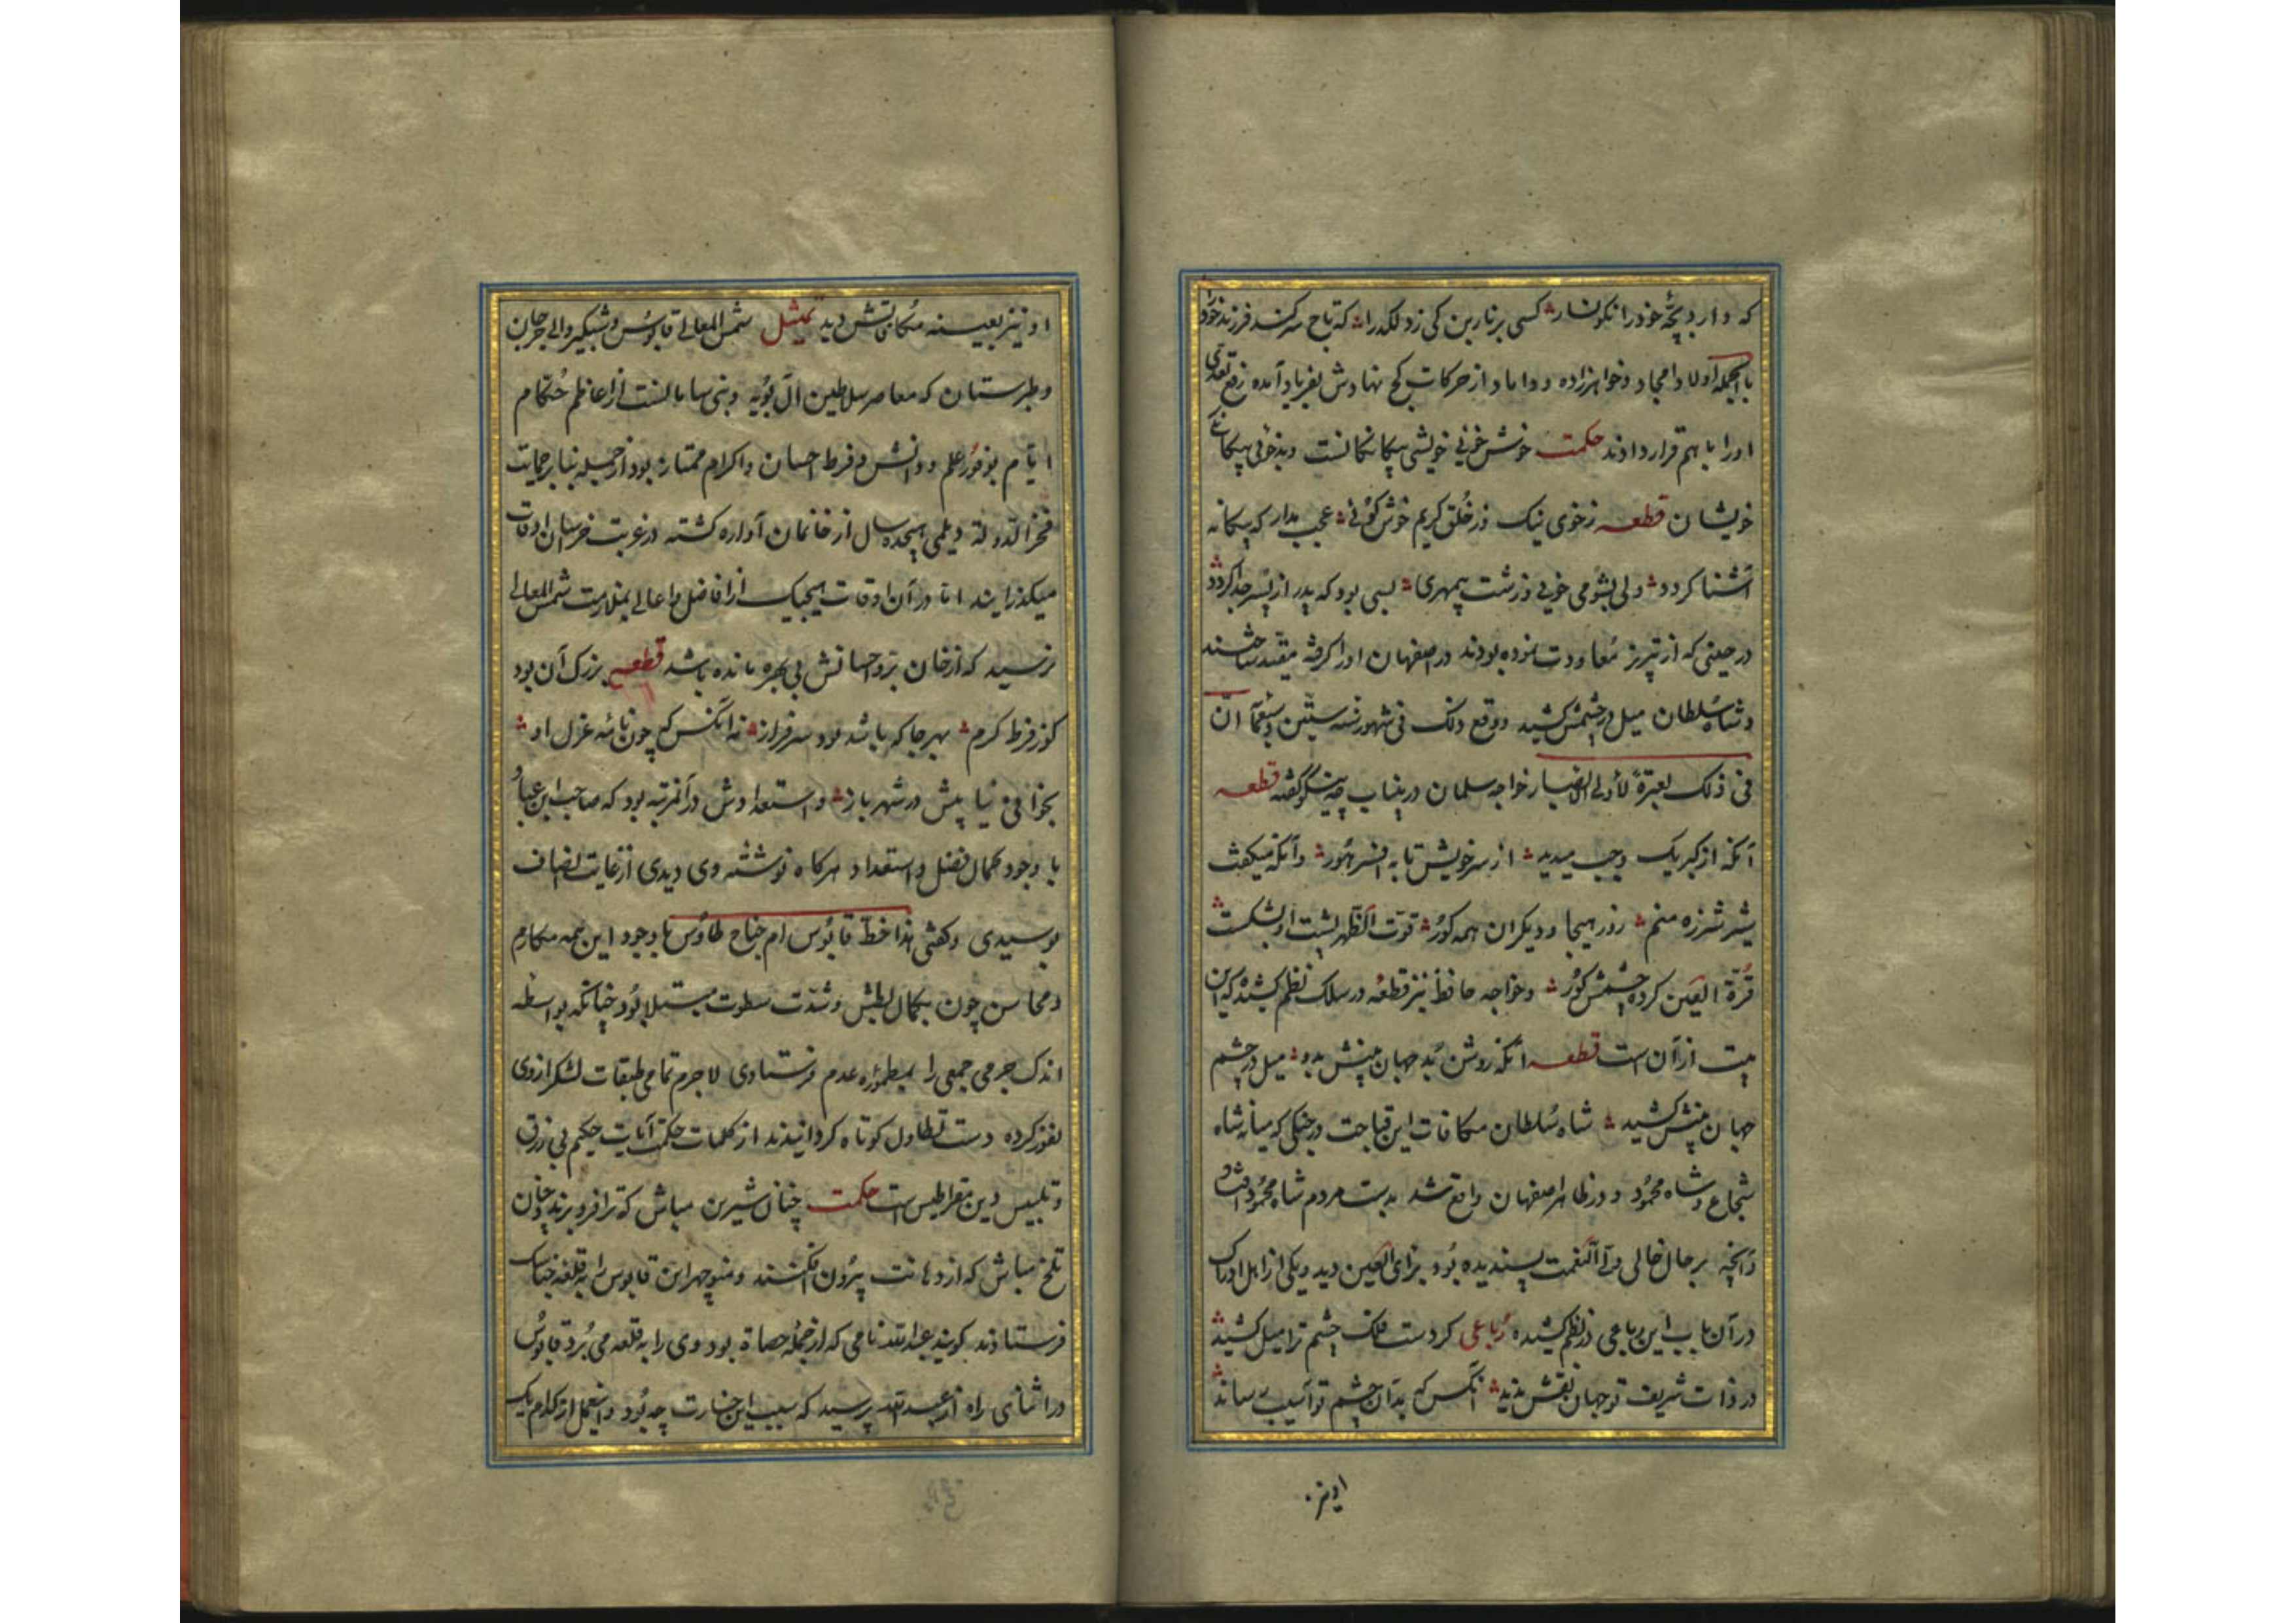 که دارد بچهٔ خود را نکونسار کسی بر نارین کی زد لکد را که تاج سر کند فرزند خود را
بالجمله اولاد امجاد و خواهرزاده و داماد از حرکات کج نهادش بفریاد آمده رفع تعدی
اورا با هم قرار دادند حکمت خوش خوئی خویشی بیکانکانست و بدخوئی بیکانکی
خویشان قطعه ز خوی نیک وز خلق کریم خوش کوئی عجب مدار که بیکانه
آشنا کردد ولی بشومی خوی درشت بیمهری بسی بود که پدر از پسر جدا کردد
در حینی که از تبریز معاودت نموده بودند در اصفهان اورا کرفته مقید ساختند
و شاه سلطان میل در چشمش کشید و وقع ذلک فی شهور سنه ستین و سبعمآ ان
فی ذلک لعبرة لأولی الابصار خواجه سلمان درینباب چه نیکو کفته قطعه
آنکه از کبر یک وجب میدید از سر خویش تا به افسر هور وآنکه میکفت
شیر شرزه منم روز هیجا و دیکران همه کور قوت الظهر پشت او بشکست
قرة العین کرده چشمش کور و خواجه حافظ نیز قطعه در سلک نظم کشیده که این
بیت از آن است قطعه آنکه روشن بد جهان بینش بدو میل در چشم
جهان بینش کشید شاه سلطان مکافات این قباحت در جنکی که میانه شاه
شجاع و شاه محمود در ظاهر اصفهان واقع شد بدست مردم شاه محمود افتاد
وآنچه بر حال خالی ولی النعمت پسندیده بود برای العین دید و یکی از اهل ادراک
در آن باب این رباعی در نظم کشیده رباعی کردست فلک چشم ترا میل کشید
در ذات شریف تو جهان نقش بدید آنکس که بدان چشم تو آسیب رساند
اونیز
او نیز بعینه مکافاتش دید تمثیل شمس المعالی قابوس وشمکیر والی جرجان
و طبرستان که معاصر سلاطین آل بویه و بنی سامانست از اعاظم حکام
ایام بوفور علم و دانش و فرط احسان و اکرام ممتاز بود از جمله بنابر حمایت
فخر الدوله دیلمی هیجده سال از خانمان آواره کشته در غربت خراسان اوقات
میکذرانید اما در آن اوقات هیچیک از افاضل و اعالی بملازمت شمس المعالی
نرسید که از خان بر و احسانش بی بهره مانده باشد قطعه بزرک آن بود
کوز فرط کرم بهر جا که باشد بود سرفراز نه آنکس که چون نامه عزل او
بخوانی نیابیش در شهر باز و استعدادش در آنمرتبه بود که صاحب ابن عباد
با وجود کمال فضل و استعداد هرکاه نوشته وی دیدی از غایت انصاف
بوسیدی و کفتی هذا خط قابوس ام جناح طاوس با وجود این همه مکارم
و محاسن چون بکمال بطش و شدت سطوت مبتلا بود چنانکه بواسطه
اندک جرمی جمعی را بمطموره عدم فرستادی لاجرم تمامی طبقات لشکر از وی
نفور کرده دست تطاول کوتاه کردانیدند از کلمات حکمت آیات حکیم بی زرق
و تلبیس دین بقراطیس است حکمت چنان شیرین مباش که ترا فرو برند و چنان
تلخ مباش که از دهانت بیرون افکنند و منوچهر ابن قابوس را به قلعه جناشک
فرستادند کویند عبدالله نامی که از جمله حصاة بود وی را به قلعه می برد قابوس
در اثنای راه از عبدالله پرسید که سبب این جسارت چه بود و اینعمل از کدام یک